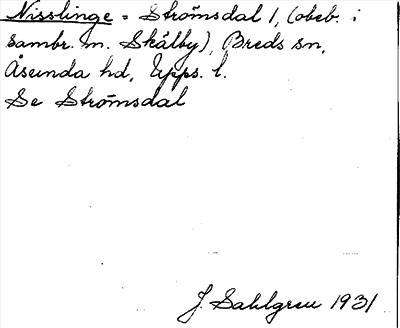 Nisslinge = Strömsdal 1, (obeb. i
sambr. m. Skälby), Breds sn,
Åsunda hd, Upps. l.
Se Strömsdal
J. Sahlgren 1931